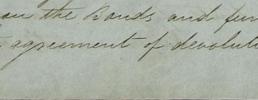 on the Bonds and fun
agreement of devoluti